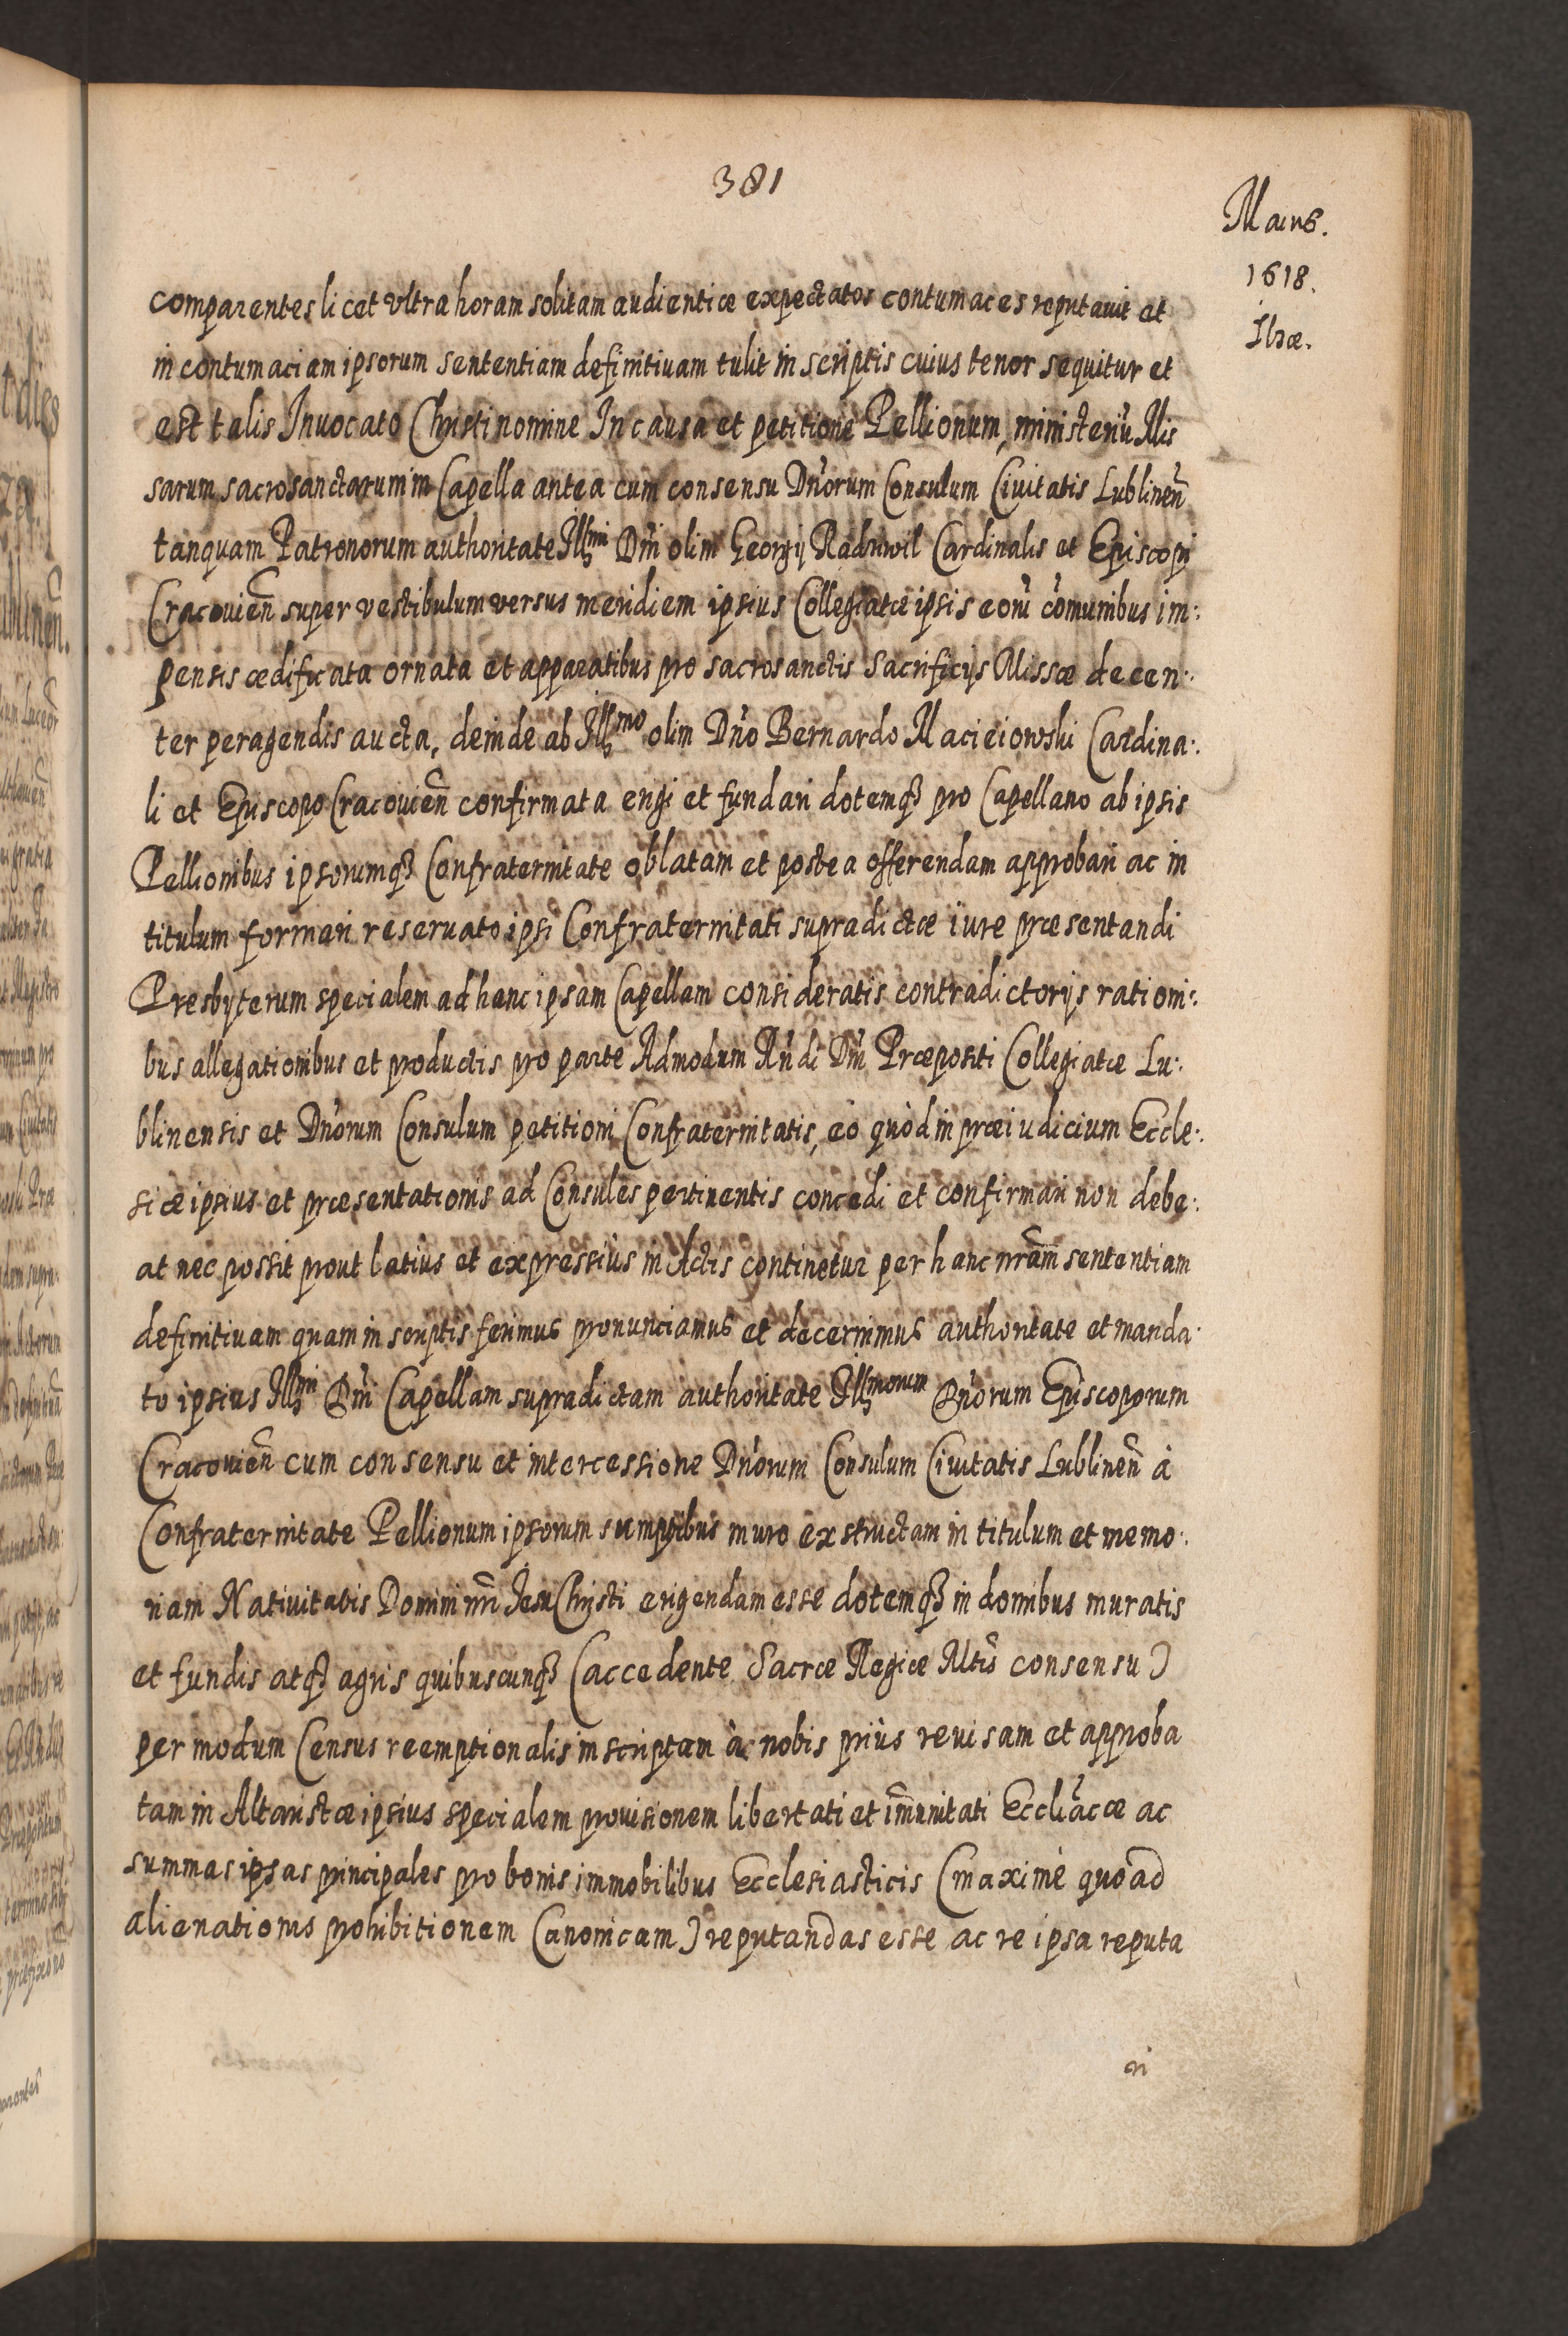 381
Maius.
1618.
Ilzæ.
comparentes licet vltra horam solitam audientiæ expectatos contumaces reputauit et
in contumaciam ipsorum sententiam definitiuam tulit in scriptis cuius tenor sequitur et
est talis Inuocato Christi nomine In causa et petitione Pellionum, ministeriũ Mis
sarum sacrosanctarum in Capella antea cum consensu Dñorum Consulum Ciuitatis Lublineñ
tanquam Patronorum authoritate Illmi Dñi olim Georgij Radziwil Cardinalis et Episcopi
Cracouieñ super vestibulum versus meridiem ipsius Collegiatæ ipsis eorũ cõmunibus im:
pensis ædificata ornata et apparatibus pro sacrosanctis Sacrificijs Missæ decen:
ter peragendis aucta, deinde ab Illmo olim Dño Bernardo Macieiowski Cardina:
li et Episcopo Cracouieñ confirmata erigi et fundari dotemq3 pro Capellano ab ipsis
Pellionibus ipsorumq3 Confraternitate oblatam et postea offerendam approbari ac in
titulum formari reseruato ipsi Confraternitati supradictæ iure præsentandi
Presbyterum specialem ad hanc ipsam Capellam consideratis contradictorijs rationi:
bus allegationibus et productis pro parte Admodum Rñdi Dñi Præpositi Collegiatæ Lu:
blinensis et Dñorum Consulum petitioni Confraternitatis, eò quòd in præiudicium Eccle:
siæ ipsius et præsentationis ad Consules pertinentis concedi et confirmari non debe:
at nec possit prout latiùs et expressiùs in Actis continetur per hanc nr̃am sententiam
definitiuam quam in scriptis ferimus pronunciamus et decernimus authoritate et manda:
to ipsius Illmi Dñi Capellam supradictam authoritate Illmorum Dñorum Episcoporum
Cracouieñ cum consensu et intercessione Dñorum Consulum Ciuitatis Lublineñ à
Confraternitate Pellionum ipsorum sumptibus muro exstructam in titulum et memo:
riam Natiuitatis Domini nr̃i Jesu Christi erigendam esse dotemq3 in domibus muratis
et fundis atq3 agris quibuscunq3 (accedente Sacræ Regiæ Mtis consensu)
per modum Census reemptionalis inscriptam à nobis priùs reuisam et approba
tam in Altaristæ ipsius specialem prouisionem libertati et im̃unitati Eccliãcæ ac
summas ipsas principales pro bonis immobilibus Ecclesiasticis (maximè quoad
alienationis prohibitionem Canonicam) reputandas esse ac re ipsa reputa
ri